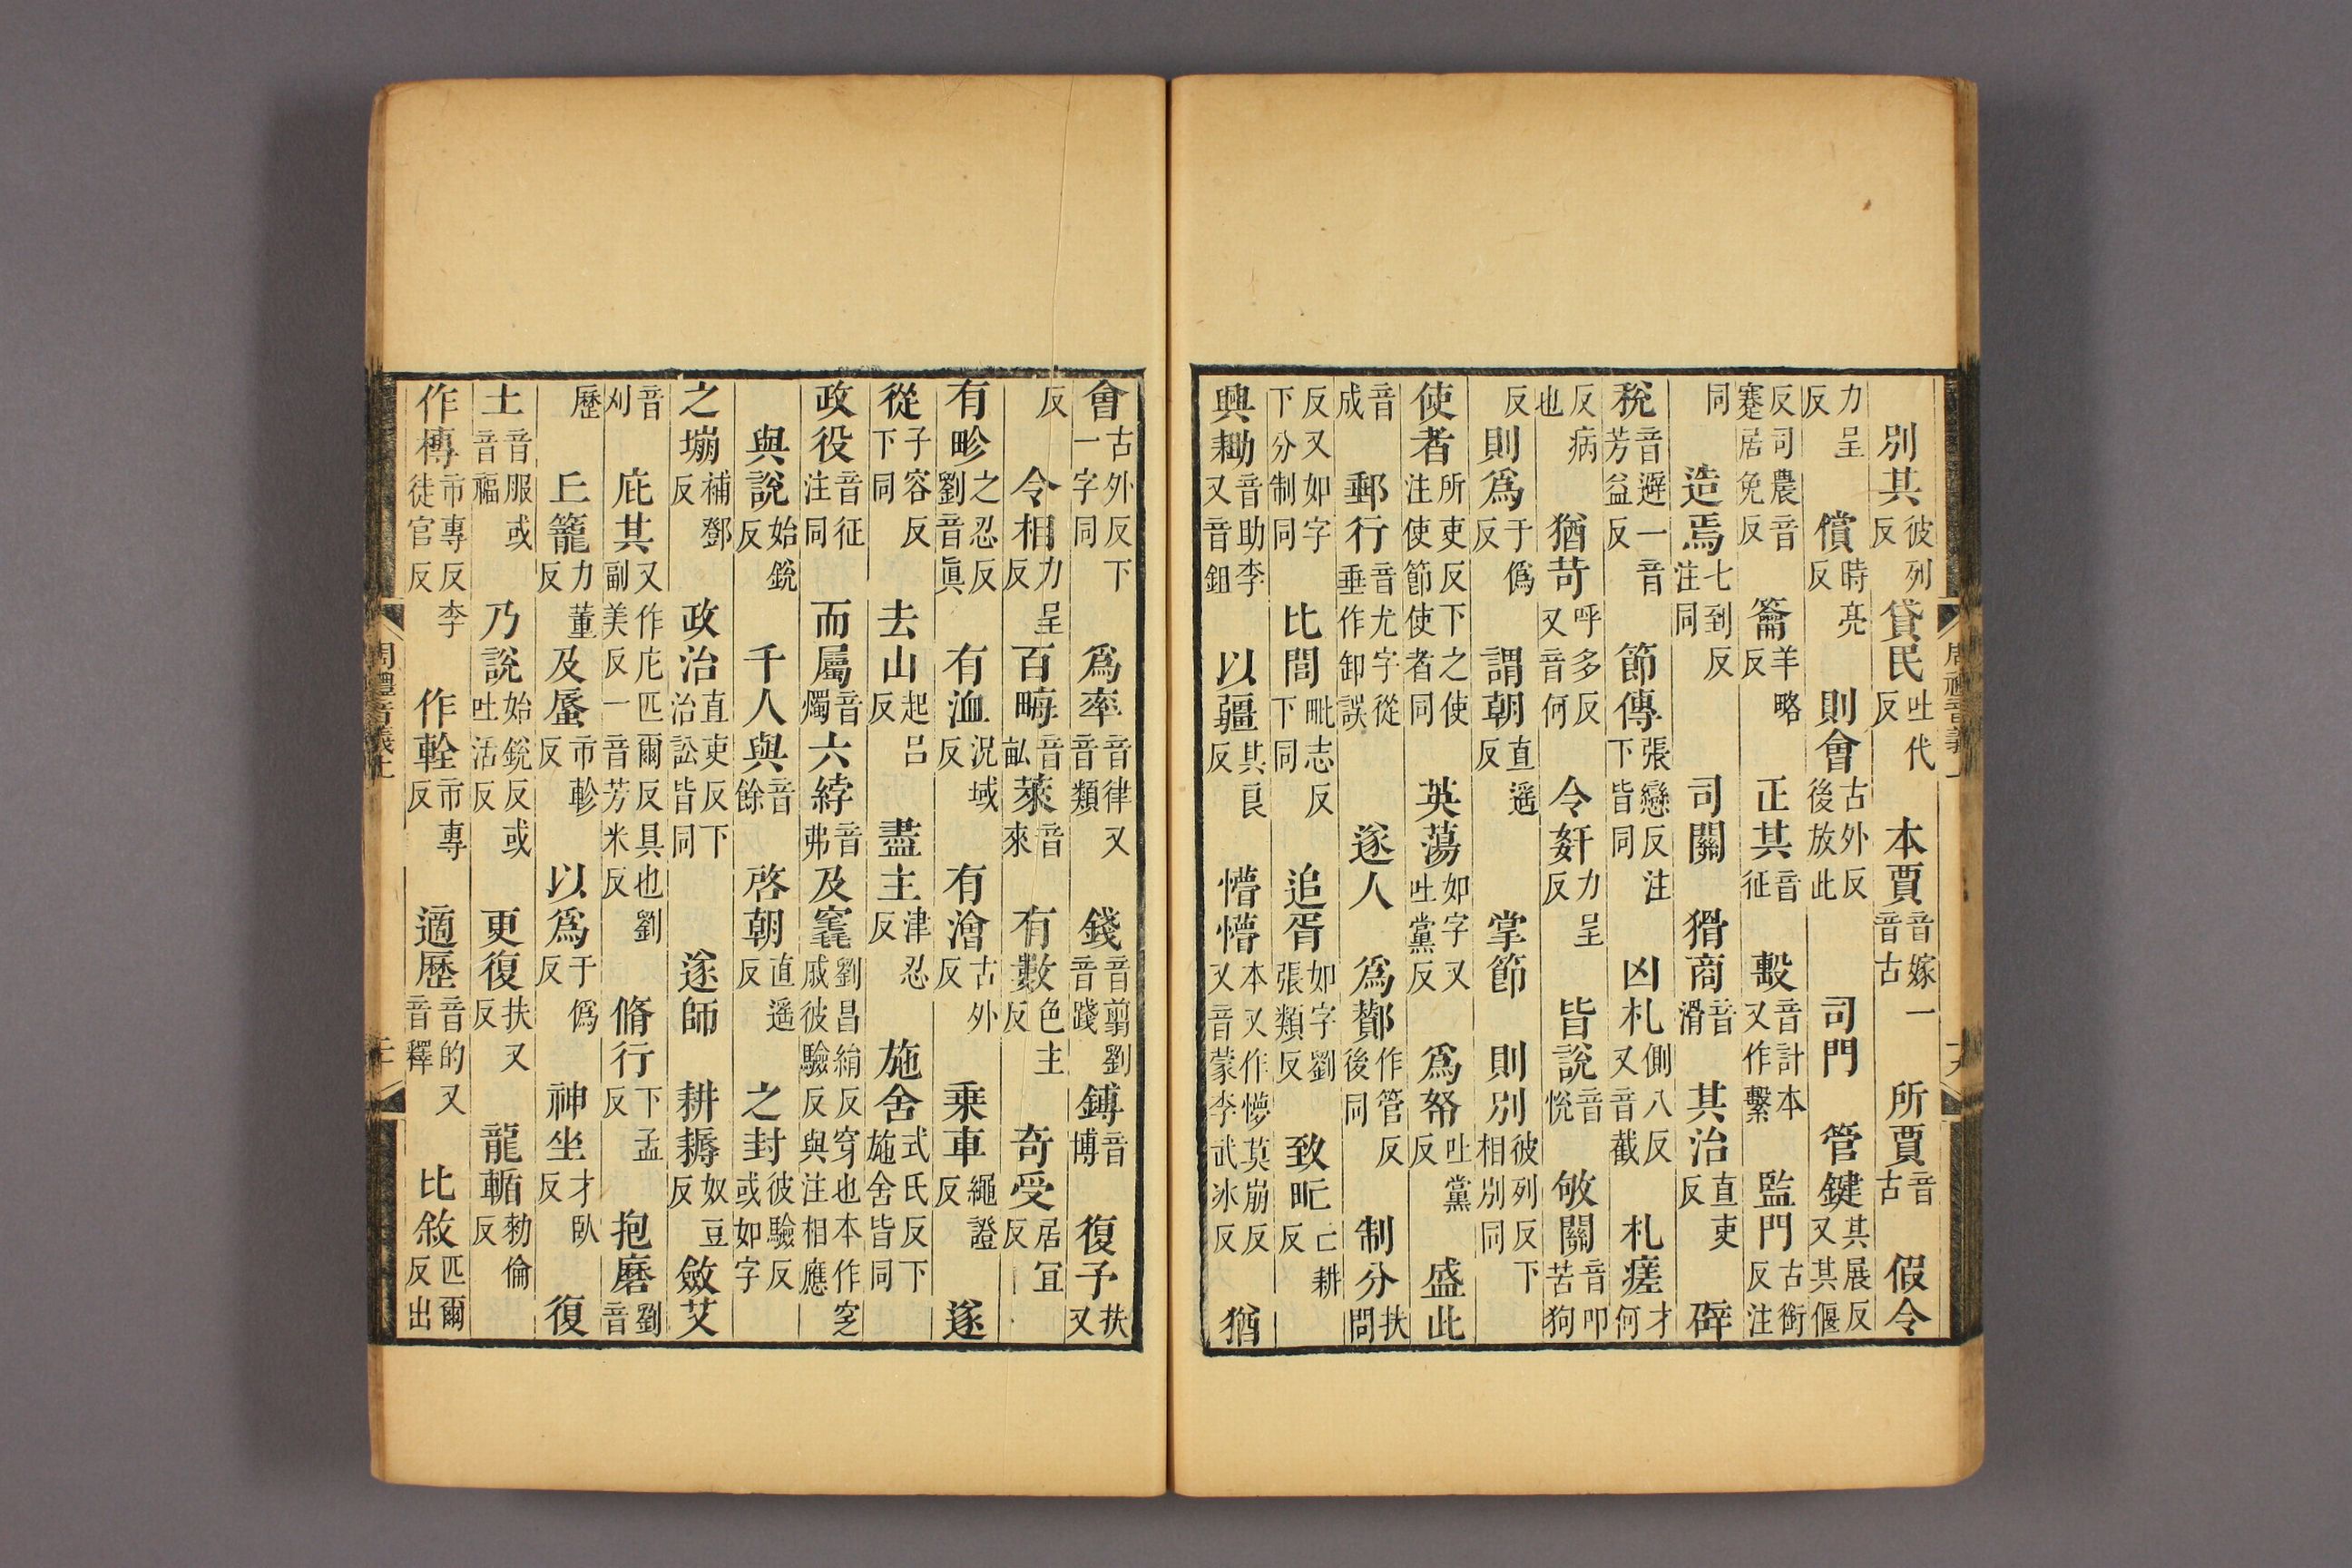 別其彼列反貸民吐代反本賈音嫁一音古所賈音古假令
力呈反償時亮反則會古外反後放此司門管鍵其展反又其偃
反司農音蹇居免反籥羊略反正其音征毄音計本又作繫監門古銜反注
同造焉七到反注同司關猾商音滑其治直吏反辟
稅音避一音芳益反節傳張戀反注下皆同凶札側八反又音截札瘥才何
反病也猶苛呼多反又音何令奸力呈反皆說音悅敂關音叩苦狗
反則爲于僞反謂朝直遥反掌節則別彼列反下相別同
使者所吏反下之使注使節使者同英蕩如字又吐黨反爲帑吐黨反盛此
音成郵行音尤字從垂作卸誤遂人爲酇作管反後同制分扶問
反又如字下分制同比閭毗志反下同追胥如字劉張類反致甿亡耕反
興耡音助李又音鉏以疆其良反懵懵本又作懜莫崩反又音蒙李武冰反猶
會古外反下一字同爲率音律又音類錢音翦劉音踐鎛音博復予扶又
反令相力呈反百畮音畝萊音來有數色主反奇受居宜反
有畛之忍反劉音眞有洫況域反有澮古外反乗車繩證反遂
從子容反下同去山起呂反盡主津忍反施舍式氏反下施舍皆同
政役音征注同而屬音燭六綍音弗及竁劉昌絹反穿也本作窆戚彼驗反與注相應
與說始銳反千人與音餘啓朝直遥反之封彼驗反或如字
之堋補鄧反政治直吏反下治訟皆同遂師耕耨奴豆反斂艾
音刈庇其又作庀匹爾反具也劉副美反一音芳米反脩行下孟反抱磨劉音
歷丘籠力董反及蜃市軫反以爲于僞反神坐才臥反復
土音服或音福乃說始銳反或吐活反更復扶又反龍輴勑倫反
作槫市專反李徒官反作輇市專反適歷音的又音釋比敘匹爾反出
周禮音義上